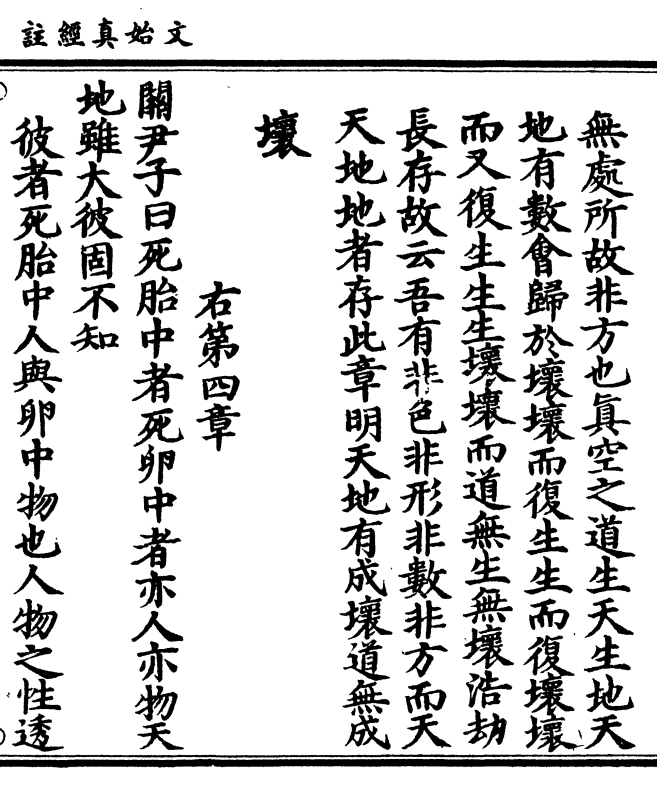 文始真經註
無處所故非方也眞空之道生天生地天
地有數會歸於壞壞而復生生而復壞壞
而又復生生生壞壞而道無生無壞浩劫
長存故云吾有非色非形非數非方而天
天地地者存此章明天地有成壞道無成
壞
右第四章
關尹子曰死胎中者死卵中者亦人亦物天
地雖大彼固不知
彼者死胎中人與卵中物也人物之性透